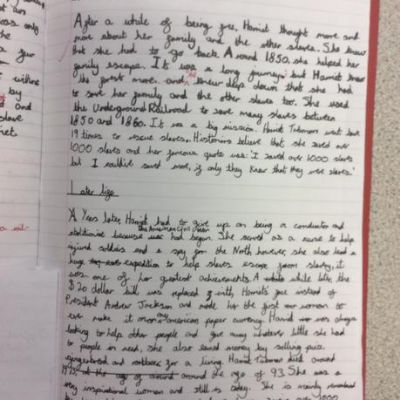 After a while of being free, Hariet thought more and
more about her family and the other slaves. She knew
that she had to go back. Around 1850, she helped her
family escape. It was a long journey, but Hariet knew
the forest more and knew deep down that she had
to save her family and the other slaves too. She used
the Underground Railroad to save many slaves between
1850 and 1860. It was a big mission. Hariet Tubman went back
19 times to rescue slaves. Historians believe that she saved over
1000 slaves and her famous quote was: 'I saved over 1000 slaves
but I could've saved more, if only they knew that they were slaves.'
Later life
A years later, Hariet had to give up on being a conductor and
abolitionist because the American Civil War had begun. She served as a nurse to help
injured soldiers and a spy for the North however, she also had a
huge expedition to help slaves escape from slavery, it
was one of her greatest achievements. A while later, the
$20 dollar bill was replaced with Hariet's face instead of
President Andrew Jackson and made her the first woman to
ever make it on american paper currency. Hariet was always
looking to help other people and give away whatever little she had
to people in need, she also saved money by selling pies,
gingerbread and rootbeer for a living. Hariet Tubman died around
at the age of around the age of 93. She was a
very inspirational woman and still is today. She is mainly remembered